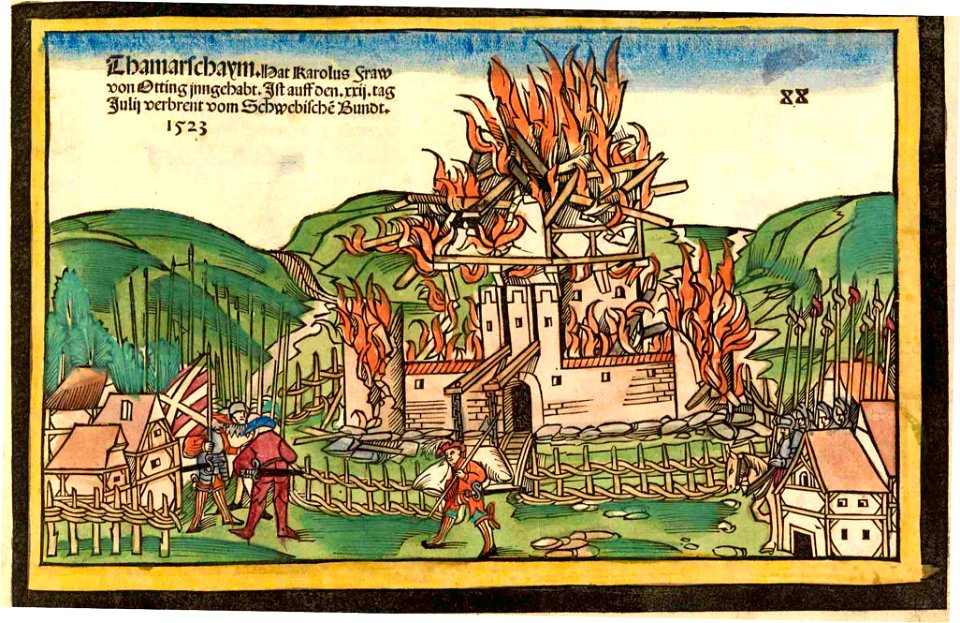 Thamarschaym. Hat Karolus Fraw
von Otting jnngehabt. Jst auff den. xxij. tag
Julij verbrent vom Schwebischē Bundt.
1523
XX